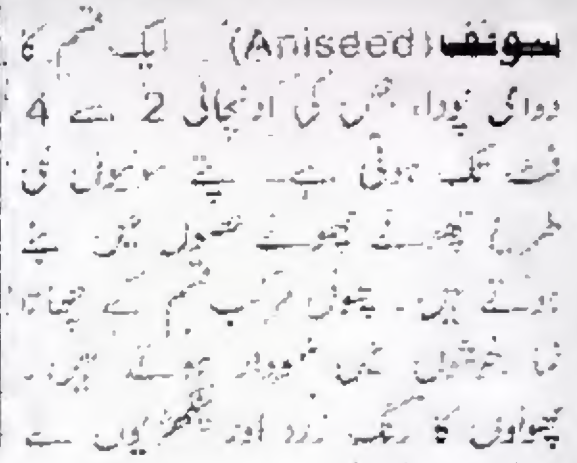 سونف (Aniseed) ایک قسم کا
دوائی پودا، جس کی اونچائی 2 سے 4
فٹ تک ہوتی ہے۔ پتے سوئیوں کی
طرح چھوٹے چھوٹے میں بٹے
ہوتے ہیں۔ پھول مرکب قسم کے چھاتا
نما میں نمودار ہوتے ہیں۔
پھولوں کا رنگ زرد اور پنکھڑیوں سے